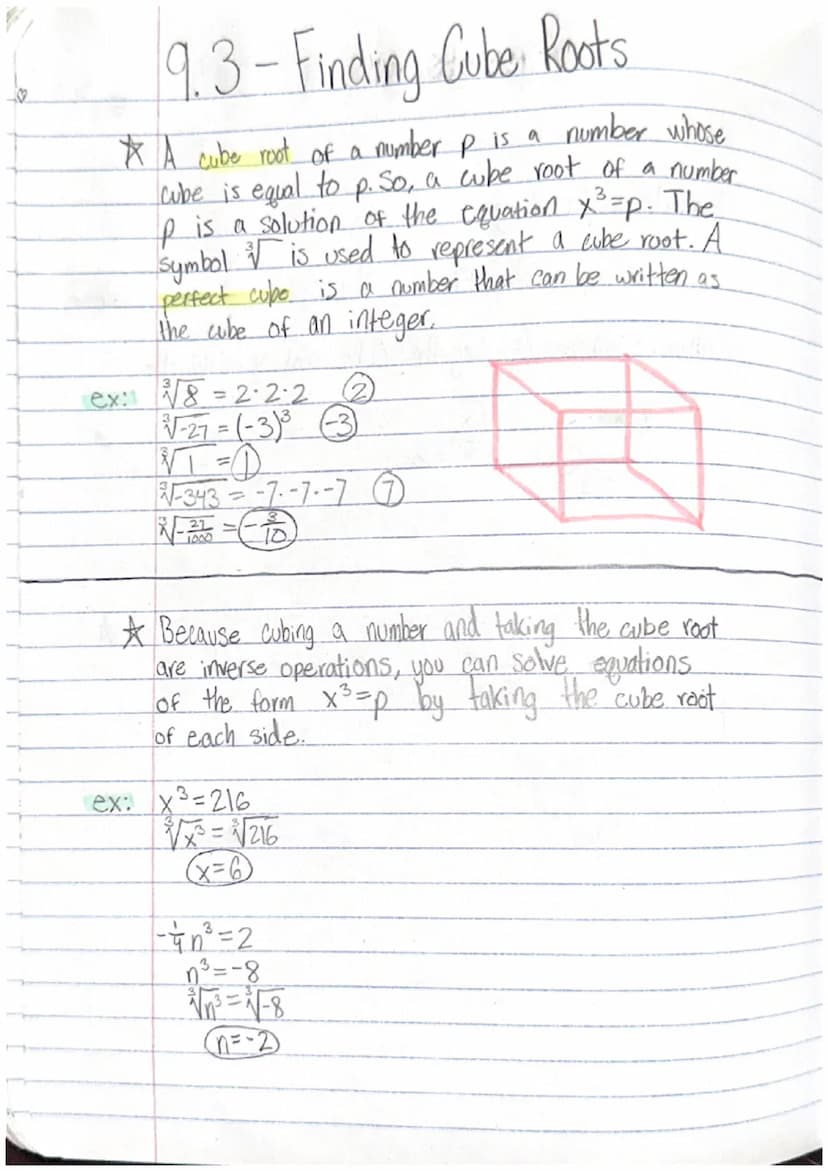 9.3 - Finding Cube Roots
☆ A cube root of a number p is a number whose
cube is equal to p. So, a cube root of a number
p is a solution of the equation x³=p. The
symbol ∛ is used to represent a cube root. A
perfect cube is a number that can be written as
the cube of an integer.
ex: ∛8 = 2·2·2 ②
∛-27 = (-3)³ (-3)
∛1 = ①
∛-343 = -7·-7·-7 ⑦
∛-27/1000 = (-3/10)
☆ Because cubing a number and taking the cube root
are inverse operations, you can solve equations
of the form x³=p by taking the cube root
of each side.
ex: x³=216
∛x³ = ∛216
x=6
-1/4 n³=2
n³=-8
∛n³ = ∛-8
n=-2